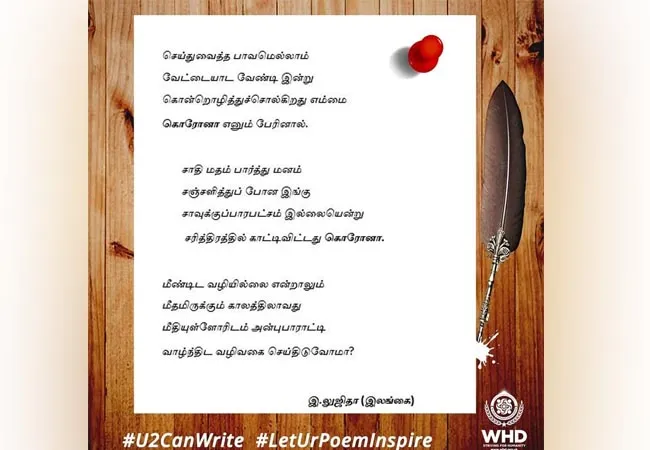 செய்துவைத்த பாவமெல்லாம்
வேட்டையாட வேண்டி இன்று
கொன்றொழித்துச்சொல்கிறது எம்மை
கொரோனா எனும் பேரினால்.
சாதி மதம் பார்த்து மனம்
சஞ்சளித்துப் போன இங்கு
சாவுக்குப்பாரபட்சம் இல்லையென்று
சரித்திரத்தில் காட்டிவிட்டது கொரோனா.
மீண்டிட வழியில்லை என்றாலும்
மீதமிருக்கும் காலத்திலாவது
மீதியுள்ளோரிடம் அன்புபாராட்டி
வாழ்ந்திட வழிவகை செய்திடுவோமா?
இ.லுஜிதா (இலங்கை)
#U2CanWrite #LetUrPoemInspire
WHD
STRIVING FOR HUMANITY